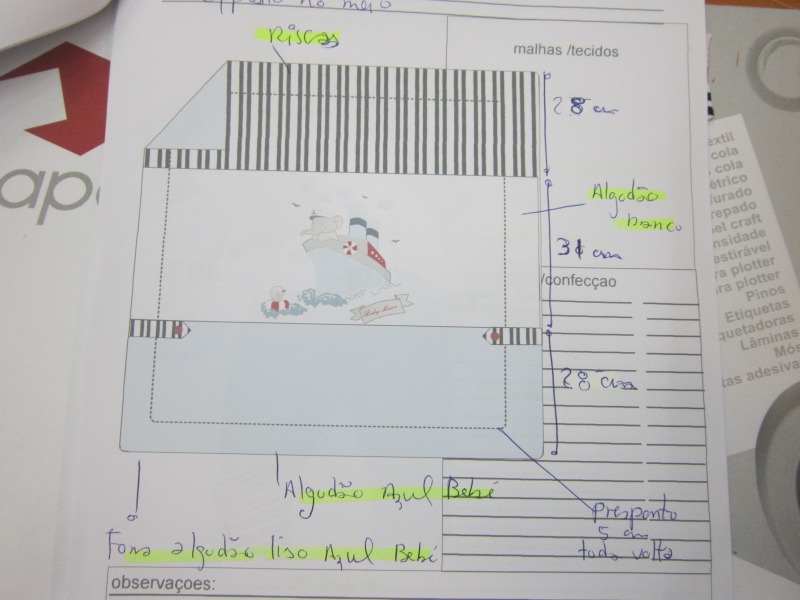 no meio
Riscas
malhas /tecidos
28 cm
Algodão
branco
31 cm
/confecçao
Baby Marine
28 cm
Algodão Azul Bebé
Presponto
5 cm
toda volta
Forra algodão liso Azul Bebé
observaçoes:
ap
extil
cola
cola
étrico
urado
repado
el craft
nsidade
estirável
ra plotter
ra plotter
Pinos
Etiquetas
quetadoras
Lâminas
Mós
tas adesiva